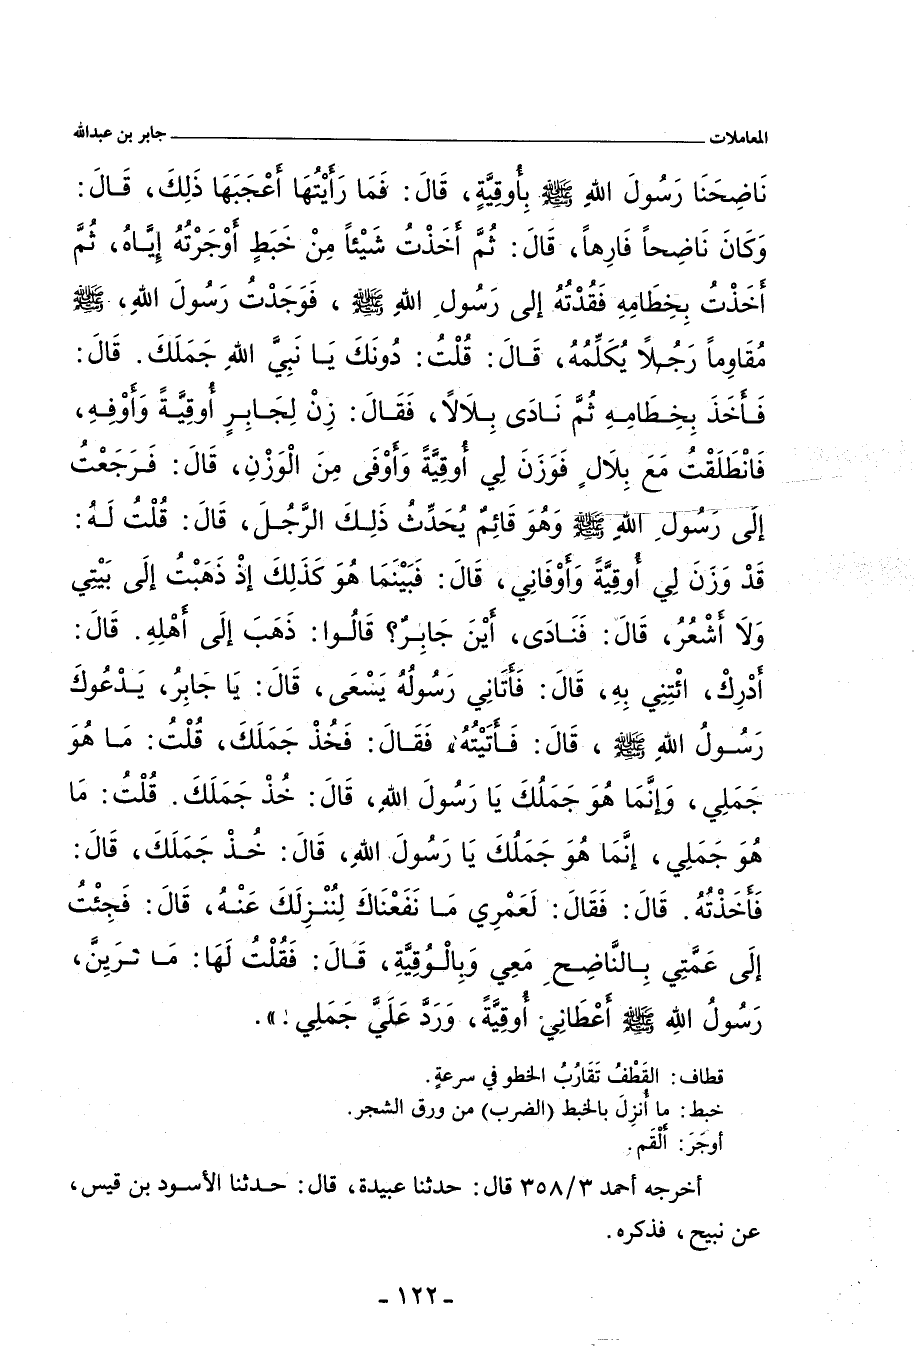 المعاملات ــــــــــــ جابر بن عبدالله
نَاضِحَنَا رَسُولَ اللهِ ﷺ بِأُوقِيَّةٍ، قَالَ: فَمَا رَأَيْتُهَا أَعْجَبَهَا ذَلِكَ، قَالَ:
وَكَانَ نَاضِحاً فَارِهاً، قَالَ: ثُمَّ أَخَذْتُ شَيْئاً مِنْ خَبَطٍ أَوْجَرْتُهُ إِيَّاهُ، ثُمَّ
أَخَذْتُ بِخِطَامِهِ فَقُدْتُهُ إِلى رَسُولِ اللهِ ﷺ، فَوَجَدْتُ رَسُولَ اللهِ، ﷺ
مُقَاوِماً رَجُلاً يُكَلِّمُهُ، قَالَ: قُلْتُ: دُونَكَ يَا نَبِيَّ اللهِ جَمَلَكَ. قَالَ:
فَأَخَذَ بِخِطَامِهِ ثُمَّ نَادَى بِلَالًا، فَقَالَ: زِنْ لِجَابِرٍ أُوقِيَّةً وَأَوْفِهِ،
فَانْطَلَقْتُ مَعَ بِلَالٍ فَوَزَنَ لِي أُوقِيَّةً وَأَوْفَى مِنَ الْوَزْنِ، قَالَ: فَرَجَعْتُ
إِلَى رَسُولِ اللهِ ﷺ وَهُوَ قَائِمٌ يُحَدِّثُ ذَلِكَ الرَّجُلَ، قَالَ: قُلْتُ لَهُ:
قَدْ وَزَنَ لِي أُوقِيَّةً وَأَوْفَانِي، قَالَ: فَبَيْنَمَا هُوَ كَذَلِكَ إِذْ ذَهَبْتُ إِلَى بَيْتِي
وَلَا أَشْعُرُ، قَالَ: فَنَادَى، أَيْنَ جَابِرٌ؟ قَالُوا: ذَهَبَ إِلَى أَهْلِهِ. قَالَ:
أَدْرِكْ، ائْتِنِي بِهِ، قَالَ: فَأَتَانِي رَسُولُهُ يَسْعَى، قَالَ: يَا جَابِرُ، يَدْعُوكَ
رَسُولُ اللهِ ﷺ، قَالَ: فَأَتَيْتُهُ، فَقَالَ: فَخُذْ جَمَلَكَ، قُلْتُ: مَا هُوَ
جَمَلِي، وَإِنَّمَا هُوَ جَمَلُكَ يَا رَسُولَ اللهِ، قَالَ: خُذْ جَمَلَكَ. قُلْتُ: مَا
هُوَ جَمَلِي، إِنَّمَا هُوَ جَمَلُكَ يَا رَسُولَ اللهِ، قَالَ: خُذْ جَمَلَكَ، قَالَ:
فَأَخَذْتُهُ. قَالَ: فَقَالَ: لَعَمْرِي مَا نَفَعْنَاكَ لِنُنْزِلَكَ عَنْهُ، قَالَ: فَجِئْتُ
إِلَى عَمَّتِي بِالنَّاضِحِ مَعِي وَبِالْوُقِيَّةِ، قَالَ: فَقُلْتُ لَهَا: مَا تَرَيِنَّ،
رَسُولُ اللهِ ﷺ أَعْطَانِي أُوقِيَّةً، وَرَدَّ عَلَيَّ جَمَلِي!».
قطاف: القَطْفُ تَقَارُبُ الخطو في سرعةٍ.
خبط: ما أُنزِلَ بالخبط (الضرب) من ورق الشجر.
أوجَرَ: أَلْقَم.
أخرجه أحمد ٣/٣٥٨ قال: حدثنا عبيدة، قال: حدثنا الأسود بن قيس،
عن نبيح، فذكره.
- ١٢٢ -